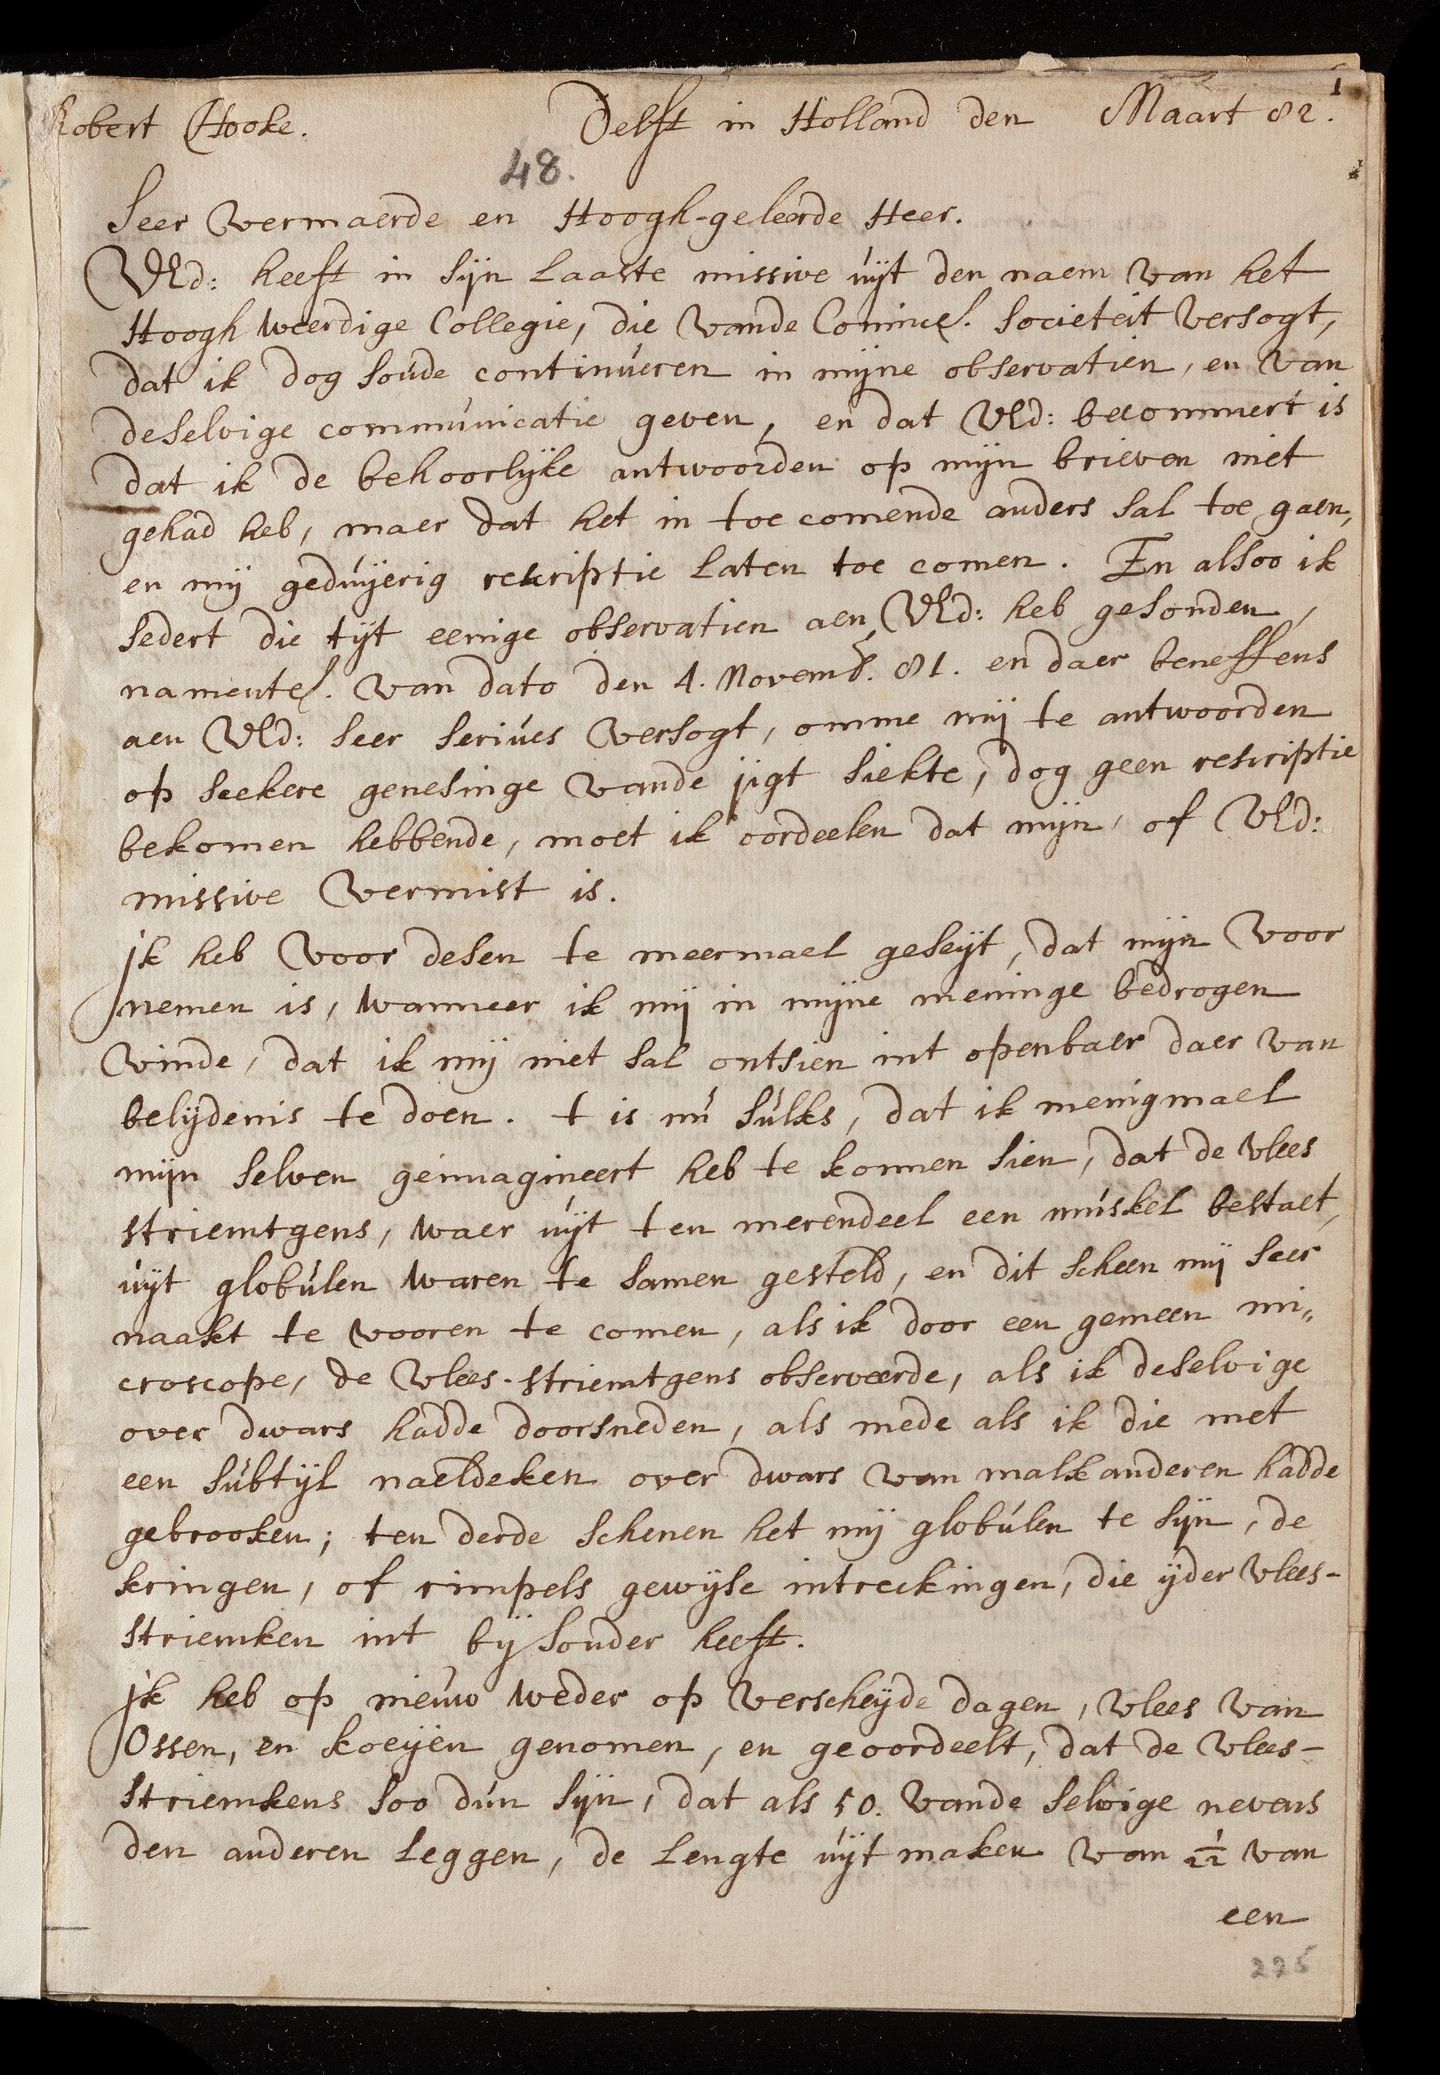 Robert Hooke. Delft in Holland den Maart 82. 1
48.
Seer vermaerde en Hoogh-geleerde Heer.
VEd: heeft in sijn laaste missive uijt den naem van het
Hoogh weerdige Collegie, die vande Conincl. Societeit versogt,
dat ik dog soude continueren in mijne observatien, en van
deselvige communicatie geven, en dat VEd: becommert is
dat ik de behoorlijke antwoorden op mijn brieven niet
gehad heb, maer dat het in toe comende anders sal toe gaen,
en mij geduijerig rescriptie laten toe comen. En alsoo ik
sedert die tijt eenige observatien aen VEd: heb gesonden,
namentel. van dato den 4. Novemb. 81. en daer beneffens
aen VEd: seer serieus versogt, omme mij te antwoorden
op seekere genesinge vande jigt siekte, dog geen rescriptie
bekomen hebbende, moet ik oordeelen dat mijn, of VEd:
missive vermist is.
jk heb voor desen te meermael geseijt, dat mijn voor
nemen is, wanneer ik mij in mijne meninge bedrogen
vinde, dat ik mij niet sal ontsien int openbaer daer van
belijdenis te doen. t is nú súlks, dat ik menigmael
mijn selven geimagineert heb te konnen sien, dat de vlees
striemtgens, waer uijt ten merendeel een múskel bestaet,
uijt globúlen waren te samen gesteld, en dit scheen mij seer
naakt te vooren te comen, als ik door een gemeen mi„
croscope, de vlees-striemtgens observeerde, als ik deselvige
over dwars hadde doorsneden, als mede als ik die met
een súbtijl naeldeken over dwars van malkanderen hadde
gebrooken; ten derde schenen het mij globúlen te sijn, de
kringen, of rimpels gewijse intreckingen, die ijder vlees-
striemken int bij sonder heeft.
jk heb op nieuw weder op verscheijde dagen, vlees van
Ossen, en koeijen genomen, en geoordeelt, dat de vlees-
striemkens soo dún sijn, dat als 50. vande selvige nevens
den anderen leggen, de lengte uijt maken van 1/22 van
een
225